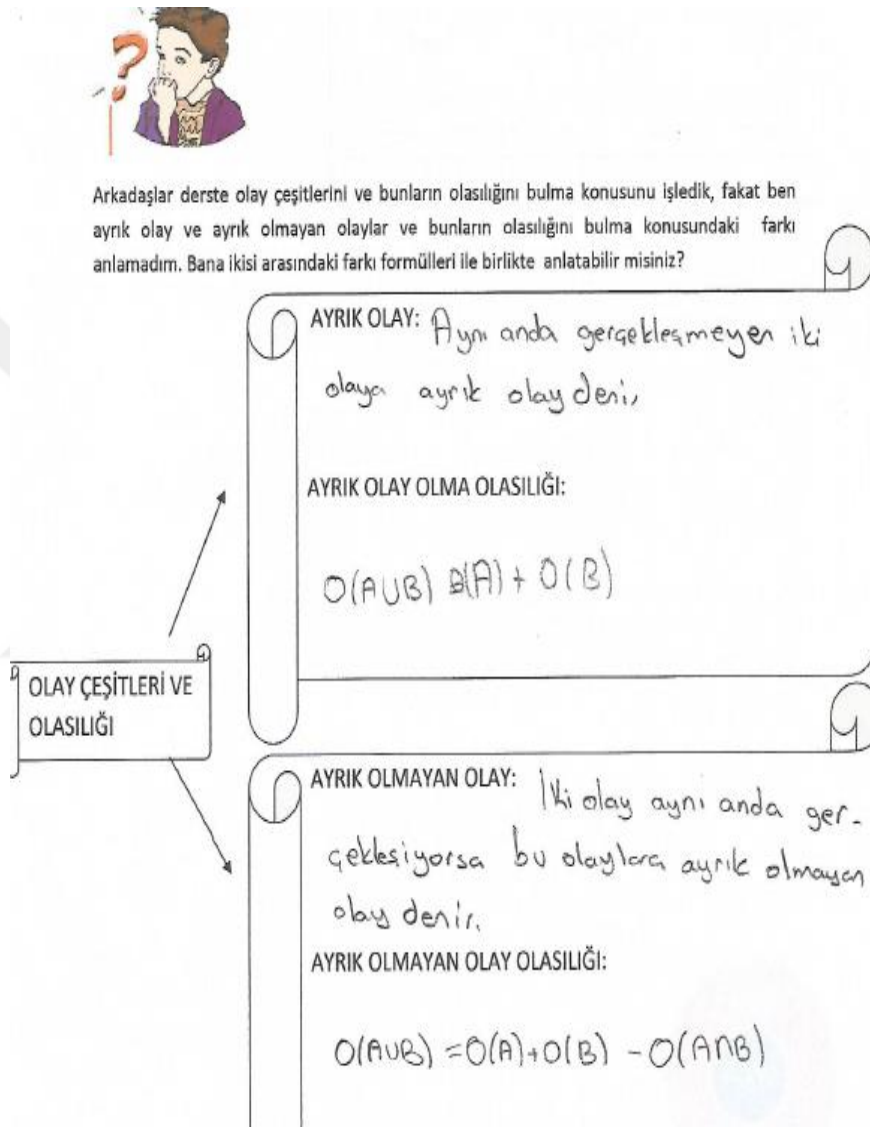 ?
Arkadaşlar derste olay çeşitlerini ve bunların olasılığını bulma konusunu işledik, fakat ben
ayrık olay ve ayrık olmayan olaylar ve bunların olasılığını bulma konusundaki farkı
anlamadım. Bana ikisi arasındaki farkı formülleri ile birlikte anlatabilir misiniz?
AYRIK OLAY: Aynı anda gerçekleşmeyen iki
olaya ayrık olay denir.
AYRIK OLAY OLMA OLASILIĞI:
O(A∪B) O(A) + O(B)
OLAY ÇEŞİTLERİ VE
OLASILIĞI
AYRIK OLMAYAN OLAY: İki olay aynı anda ger-
çekleşiyorsa bu olaylara ayrık olmayan
olay denir.
AYRIK OLMAYAN OLAY OLASILIĞI:
O(A∪B) = O(A) + O(B) - O(A∩B)